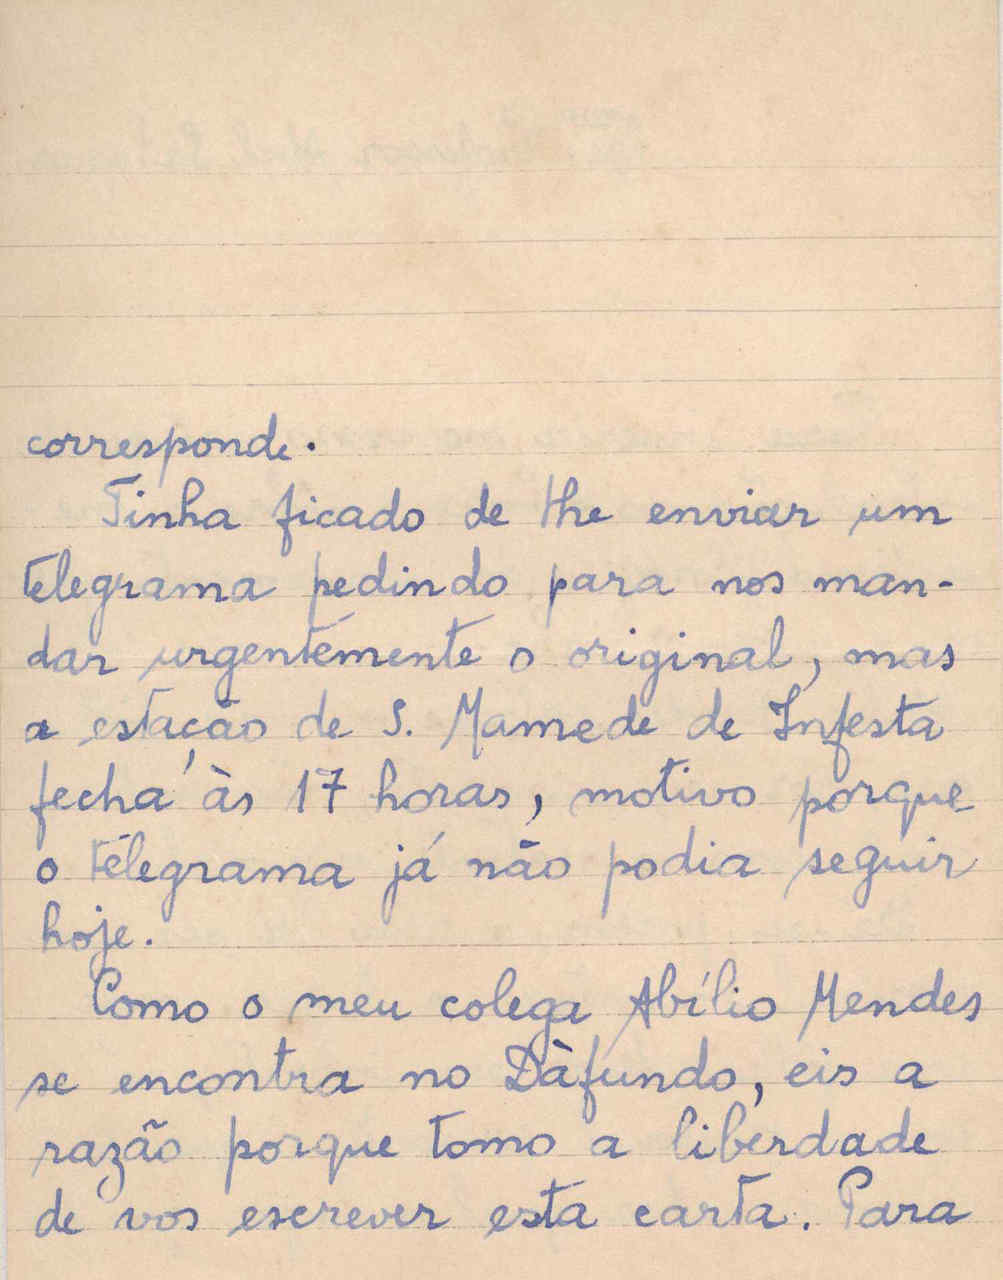 corresponde.
Tinha ficado de lhe enviar um
telegrama pedindo para nos man-
dar urgentemente o original, mas
a estação de S. Mamede de Infesta
fecha às 17 horas, motivo porque
o telegrama já não podia seguir
hoje.
Como o meu colega Abílio Mendes
se encontra no Dàfundo, eis a
razão porque tomo a liberdade
de vos escrever esta carta. Para